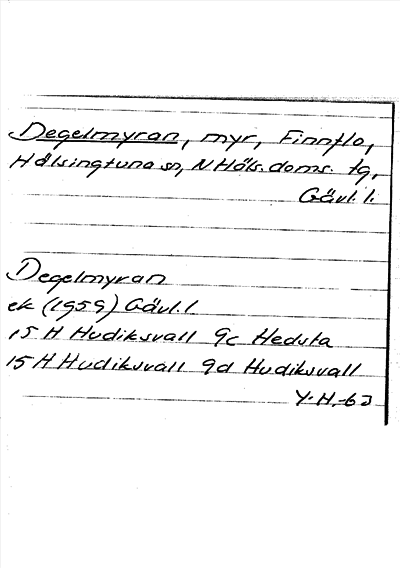 Degelmyran, myr, Finnflo,
Hälsingtuna sn, N Häls. doms. tg,
Gävl. l.
Degelmyran
ek (1959) Gävl. l.
15 H Hudiksvall 9c Hedsta
15 H Hudiksvall 9d Hudiksvall
Y. H. -63